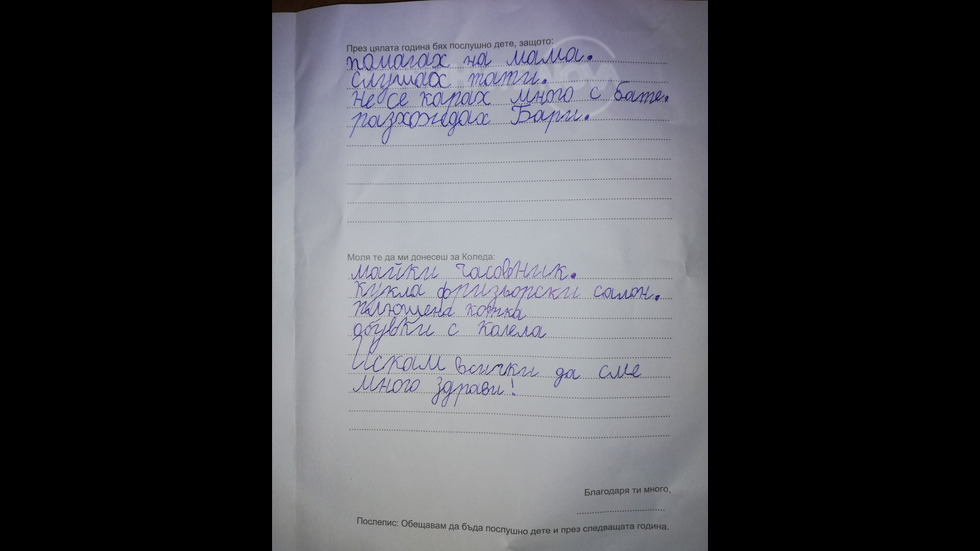 През цялата година бях послушно дете, защото:
помагах на мама.
слушах тати.
не се карах много с бате.
разхождах Бари.
Моля те да ми донесеш за Коледа:
майки часовник.
кукла фризьорски салон.
плюшена котка
обувки с колела
Искам всички да сме
много здрави!
Благодаря ти много,
Послепис: Обещавам да бъда послушно дете и през следващата година.